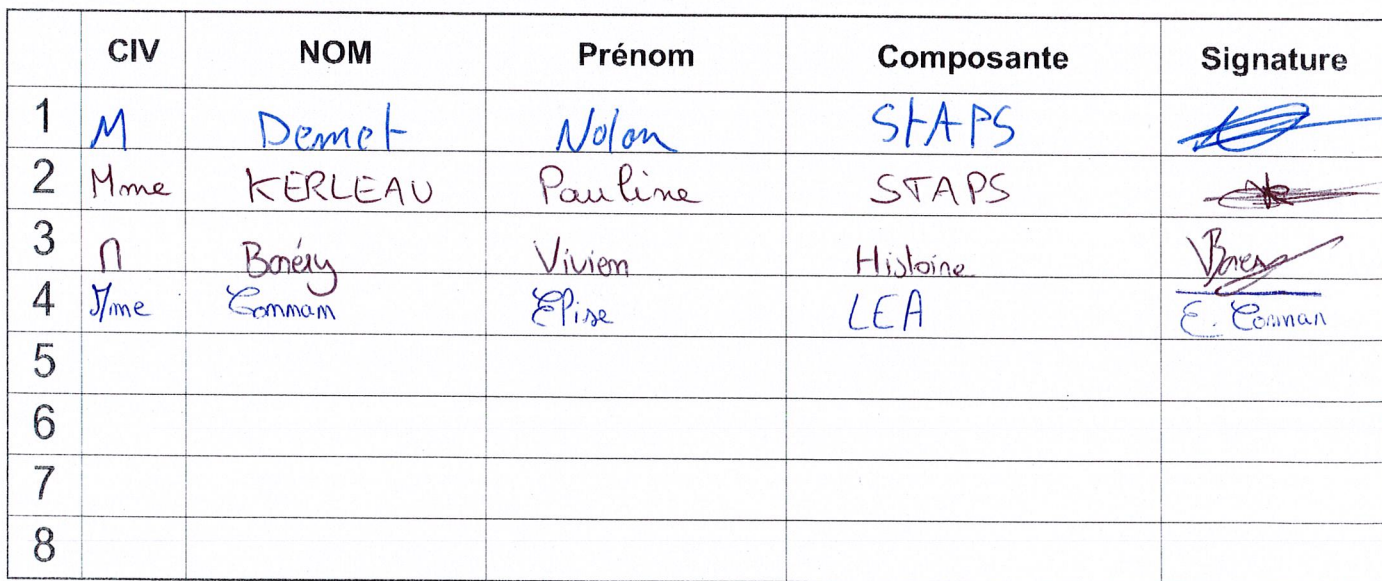 CIV NOM Prénom Composante Signature
1 M Demet Nolan STAPS
2 Mme KERLEAU Pauline STAPS
3 M Vivien Histoire
4 Mme Comman Elise LEA E. Comman
5
6
7
8